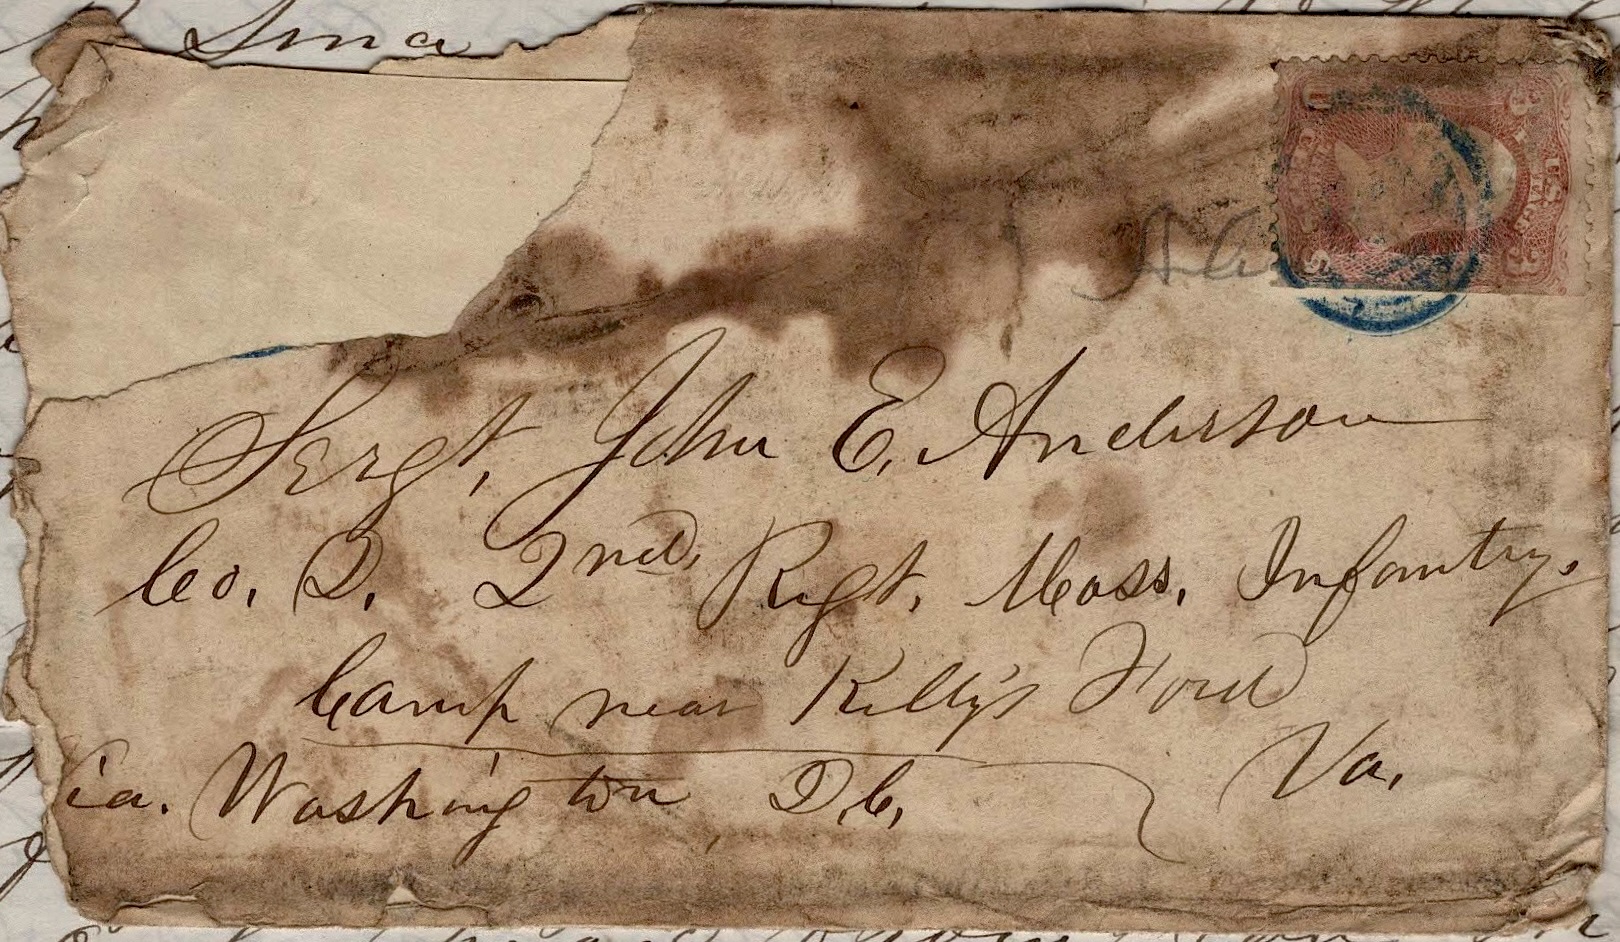 Sergt. John E. Anderson
Co. D. 2nd. Regt. Mass. Infantry.
Camp near Kelly's Ford
Va.
ia. Washington, D.C.